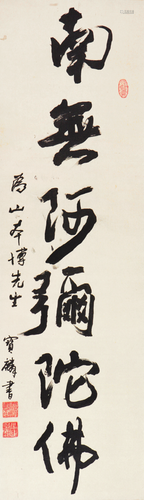 南無阿彌陀佛
為山本博先生
寶麟書